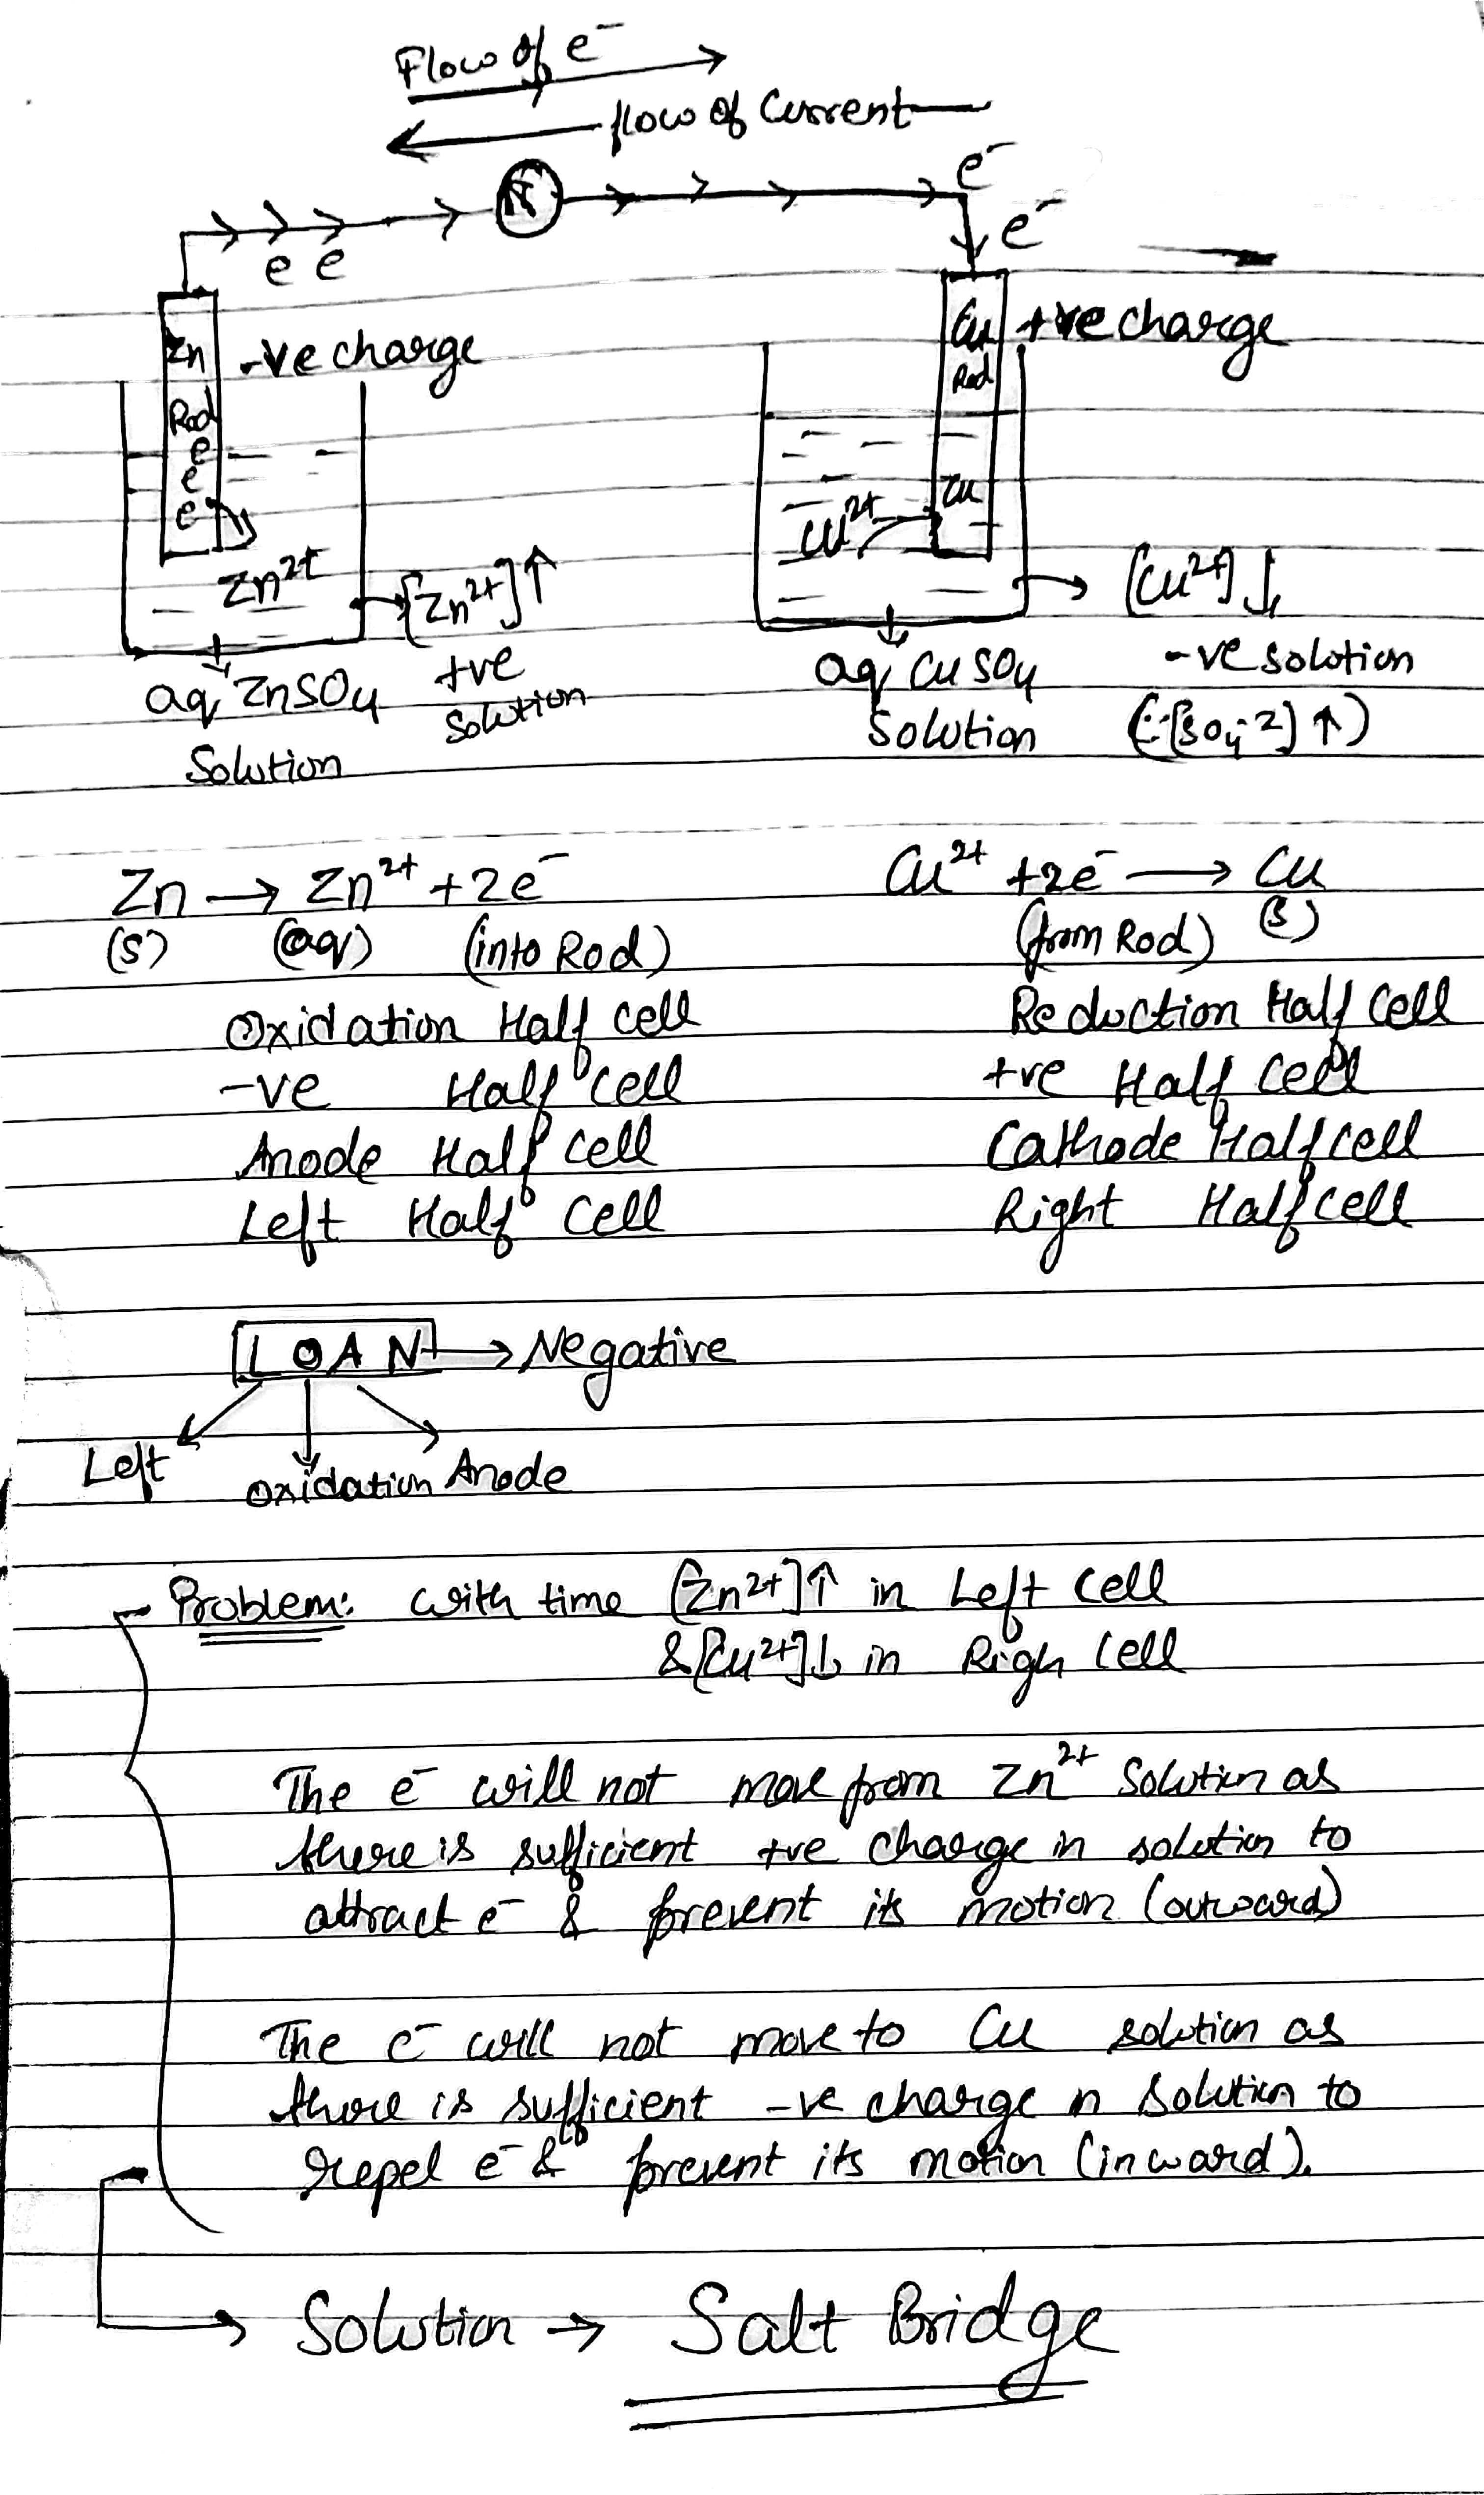 Flow of e⁻
flow of Current
e⁻
e⁻
e e
Zn
Rod
e
e
e
-ve charge
Cu
Rod
Cu
+ve charge
Zn²⁺
[Zn²⁺]↑
+ve
Solution
aq ZnSO₄
Solution
Cu²⁺
[Cu²⁺]↓
-ve solution
(∵[SO₄⁻²]↑)
aq CuSO₄
Solution
Zn → Zn²⁺ + 2e⁻
(s) (aq) (into Rod)
Oxidation Half cell
-ve Half cell
Anode Half cell
Left Half Cell
Cu²⁺ + 2e⁻ → Cu
(from Rod) (s)
Reduction Half Cell
+ve Half Cell
Cathode Half cell
Right Half cell
LOAN → Negative
Left
oxidation Anode
Problem: with time [Zn²⁺]↑ in Left Cell
& [Cu²⁺]↓ in Righ Cell
The e⁻ will not move from Zn²⁺ Solution as
there is sufficient +ve charge in solution to
attract e⁻ & prevent its motion (outward)
The e⁻ will not move to Cu solution as
there is sufficient -ve charge n solution to
repel e⁻ & prevent its motion (inward).
Solution → Salt Bridge